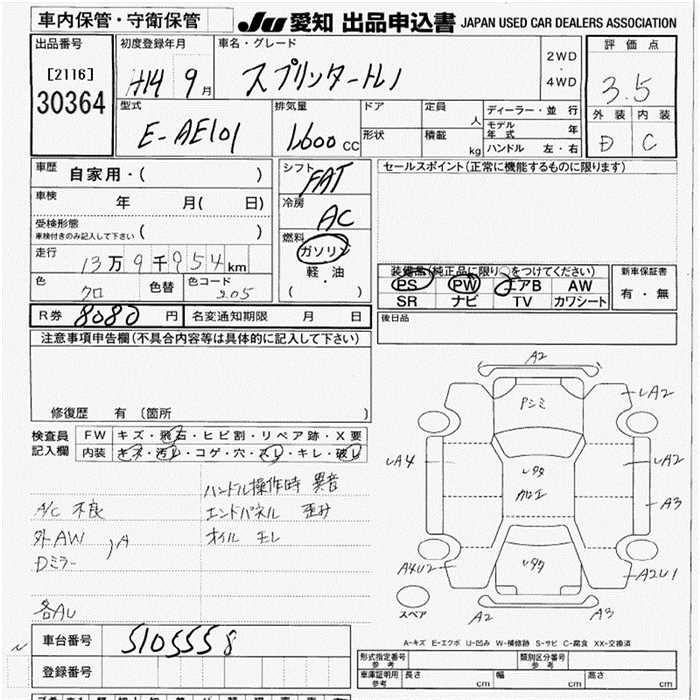 車内保管・守衛保管
JU 愛知 出品申込書 JAPAN USED CAR DEALERS ASSOCIATION
出品番号
[2116]
30364
初度登録年月
H14 9月
車名・グレード
スプリンタートレノ
2WD
・
4WD
評価点
3.5
外装 内装
D C
型式
E-AE101
排気量
1600cc
ドア
定員
人
形状
積載
kg
ディーラー・並行
モデル年式 年
ハンドル 左・右
車歴
自家用・( )
車検
年 月( 日)
受検形態
車検付きのみ記入して下さい ( )
走行
13万9千954km
色
クロ
色替
色コード
205
シフト
FAT
冷房
AC
燃料
ガソリン
・
軽 油
( )
セールスポイント(正常に機能するものに限ります)
装備品(純正品に限り○をつけてください)
PS PW エアB AW
SR ナビ TV カワシート
新車保証書
有・無
後日品
R券 8080円
名変通知期限 月 日
注意事項申告欄(不具合内容等は具体的に記入して下さい)
修復歴 有 (箇所 )
検査員記入欄
FW キズ・飛石・ヒビ割・リペア跡・X要
内装 キズ・汚レ・コゲ・穴・スレ・キレ・破レ
ハンドル操作時 異音
A/C 不良 エンドパネル 歪み
外AW オイル モレ
Dミラー
A
各AU
A2
Pシミ
LA2
LA4
LA2
A3
A4U2
A2U1
A2
A3
スペア
A-キズ E-エクボ U-凹み W-補修跡 S-サビ C-腐食 XX-交換済
車台番号
5105558
登録番号
形式指定番号
参考
類別区分番号
参考
車庫証明用
参考
長さ cm 幅 cm 高さ cm